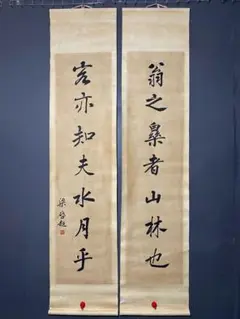 翁之乐者山林也
客亦知夫水月乎
梁启超